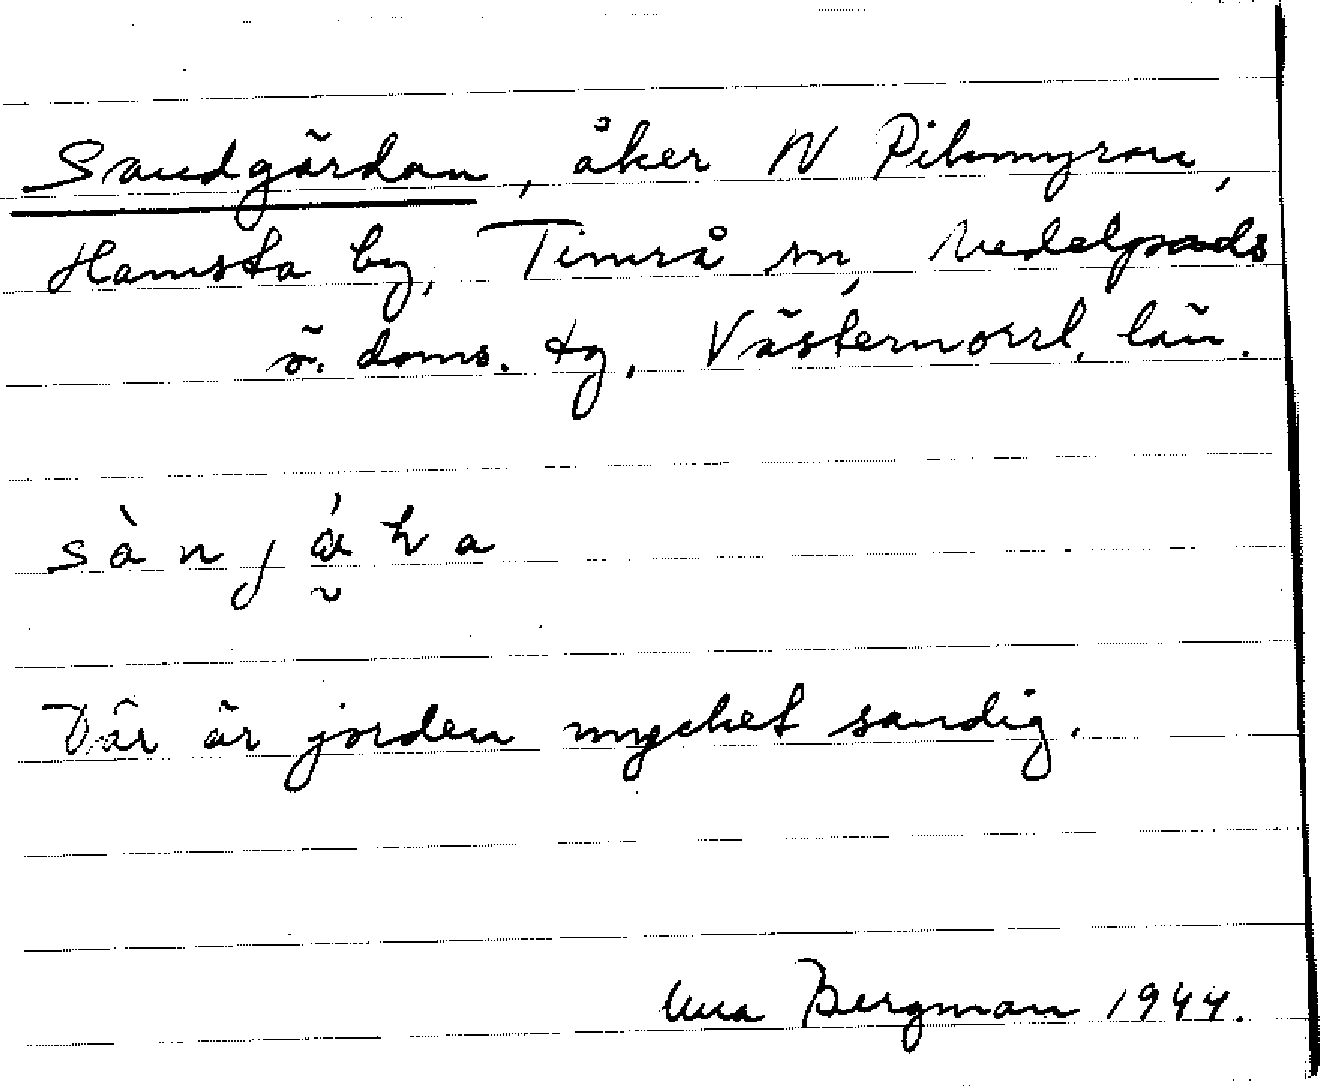 Sandgärdan, åker N Pilomyran,
Hamsta by, Timrå sn, Medelpads
ö. doms. tg, Västernorrl. län.
sànjäka
Där är jorden mycket sandig.
Una Bergman 1944.